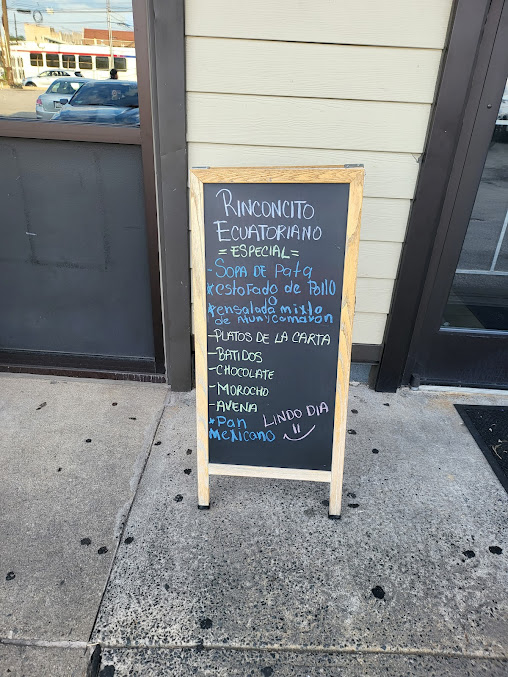 RINCONCITO
ECUATORIANO
=ESPECIAL=
-SOPA DE Pata
*estofado de Pollo
o
*ensalada mixto
de Atun y camaron
-PLATOS DE LA CARTA
-BATIDOS
-CHOCOLATE
-MOROCHO
-AVENA
LINDO DIA
*Pan
Mexicano